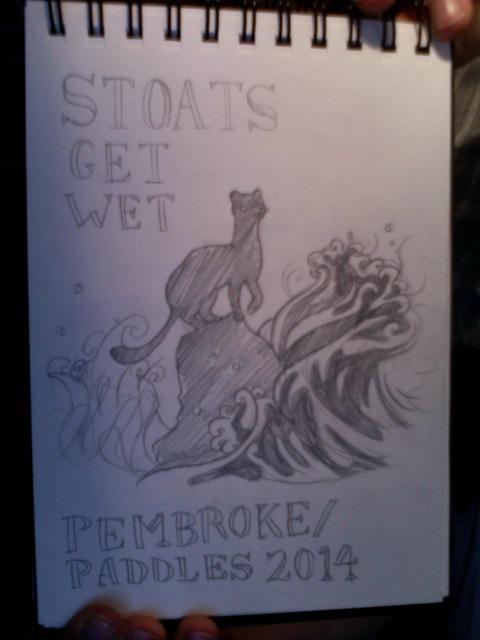 STOATS
GET
WET
PEMBROKE/
PADDLES 2014